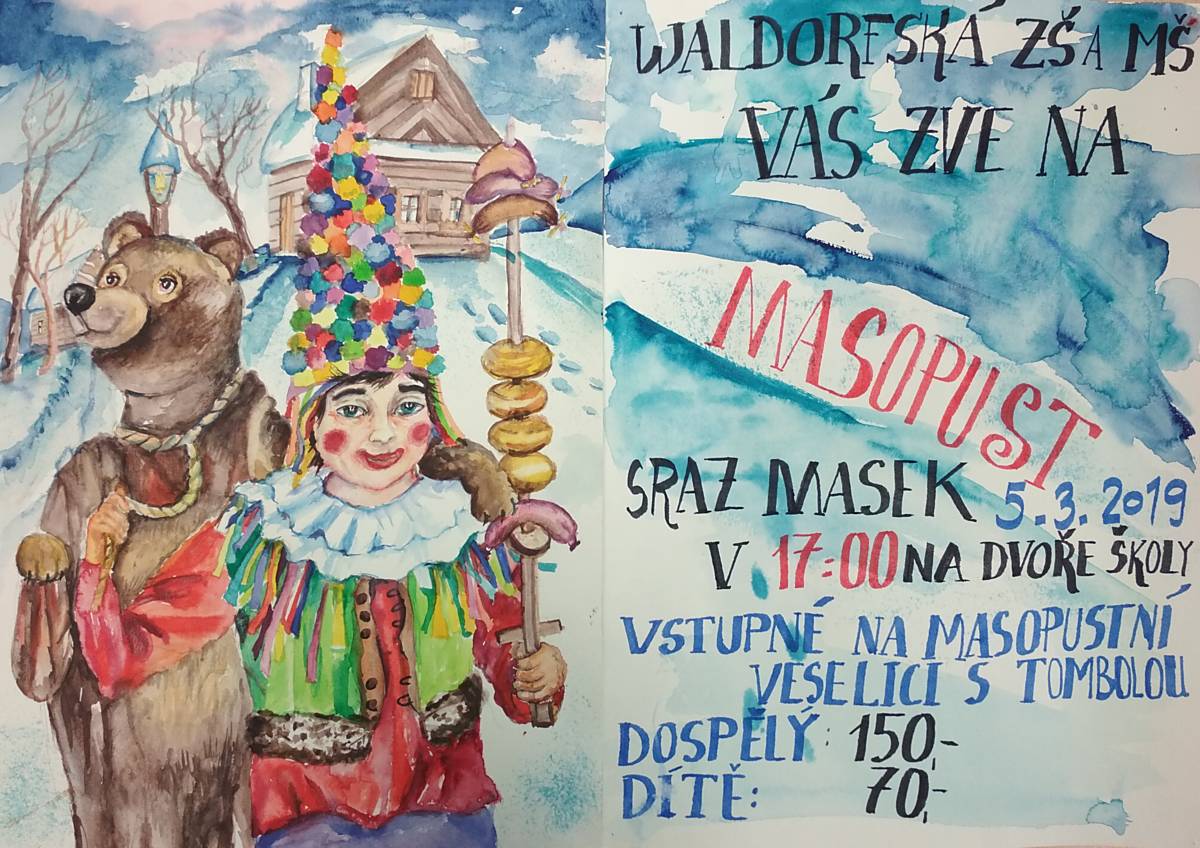 WALDORFSKÁ ZŠ A MŠ
VÁS ZVE NA
MASOPUST
SRAZ MASEK 5.3.2019
V 17:00 NA DVOŘE ŠKOLY
VSTUPNÉ NA MASOPUSTNÍ
VESELICI S TOMBOLOU
DOSPĚLÝ: 150,-
DÍTĚ: 70,-